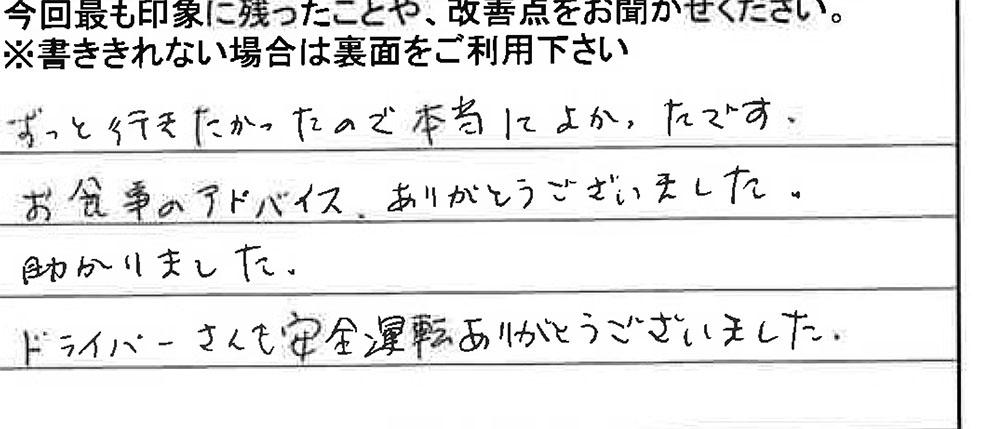 今回最も印象に残ったことや、改善点をお聞かせください。
※書ききれない場合は裏面をご利用下さい
ずっと行きたかったので本当によかったです.
お食事のアドバイス、ありがとうございました。
助かりました.
ドライバーさんも安全運転ありがとうございました.